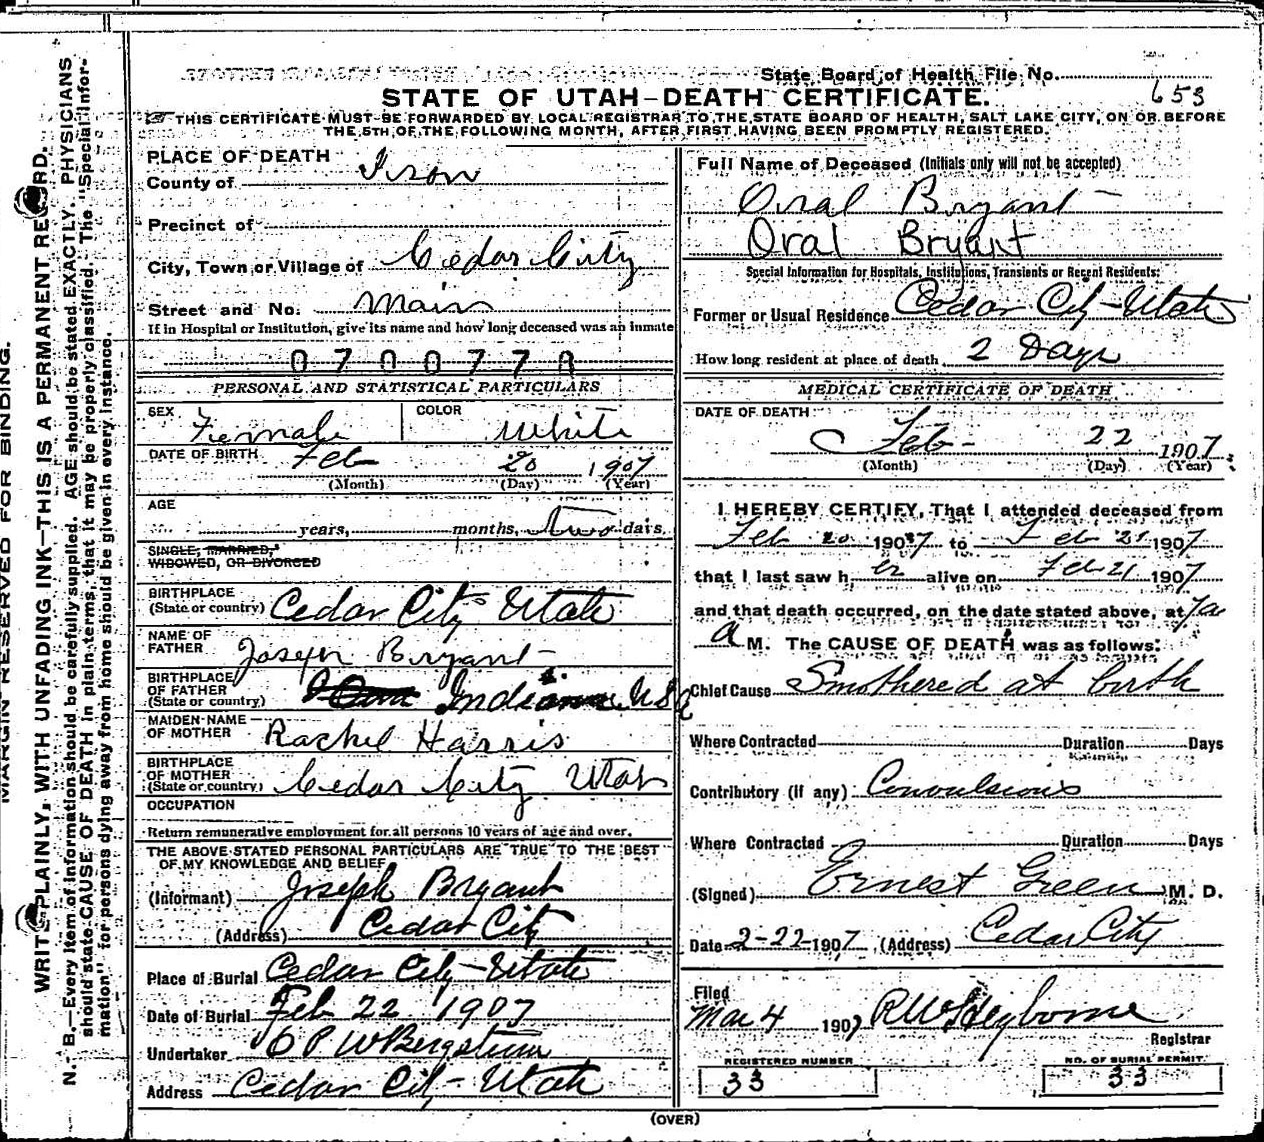 State Board of Health File No. 653
STATE OF UTAH—DEATH CERTIFICATE.
THIS CERTIFICATE MUST BE FORWARDED BY LOCAL REGISTRAR TO THE STATE BOARD OF HEALTH, SALT LAKE CITY, ON OR BEFORE
THE 5TH OF THE FOLLOWING MONTH, AFTER FIRST HAVING BEEN PROMPTLY REGISTERED.
MARGIN RESERVED FOR BINDING.
WRITE PLAINLY, WITH UNFADING INK—THIS IS A PERMANENT RECORD.
N. B.—Every item of information should be carefully supplied. AGE should be stated EXACTLY. PHYSICIANS
should state CAUSE OF DEATH in plain terms, that it may be properly classified. The "Special Infor-
mation" for persons dying away from home should be given in every instance.
PLACE OF DEATH
County of Iron
Precinct of
City, Town or Village of Cedar City
Street and No. Main
If in Hospital or Institution, give its name and how long deceased was an inmate
070077
PERSONAL AND STATISTICAL PARTICULARS
SEX Female COLOR White
DATE OF BIRTH Feb 20 1907
(Month) (Day) (Year)
AGE
years, months, two days
SINGLE, MARRIED,
WIDOWED, OR DIVORCED
BIRTHPLACE
(State or country) Cedar City Utah
NAME OF
FATHER Joseph Bryant
BIRTHPLACE
OF FATHER
(State or country) Indiana USA
MAIDEN NAME
OF MOTHER Rachel Harris
BIRTHPLACE
OF MOTHER
(State or country) Cedar City Utah
OCCUPATION
Return remunerative employment for all persons 10 years of age and over.
THE ABOVE STATED PERSONAL PARTICULARS ARE TRUE TO THE BEST
OF MY KNOWLEDGE AND BELIEF
(Informant) Joseph Bryant
(Address) Cedar City
Place of Burial Cedar City—Utah
Date of Burial Feb 22 1907
Undertaker W Bergstrom
Address Cedar City—Utah
Full Name of Deceased (Initials only will not be accepted)
Oral Bryant
Oral Bryant
Special Information for Hospitals, Institutions, Transients or Recent Residents:
Former or Usual Residence Cedar City—Utah
How long resident at place of death 2 Days
MEDICAL CERTIFICATE OF DEATH
DATE OF DEATH
Feb 22 1907
(Month) (Day) (Year)
I HEREBY CERTIFY, That I attended deceased from
Feb 20 1907 to Feb 21 1907
that I last saw her alive on Feb 21 1907
and that death occurred, on the date stated above, at
a M. The CAUSE OF DEATH was as follows:
Chief Cause Smothered at birth
Where Contracted Duration Days
Contributory (if any) Convulsions
Where Contracted Duration Days
(Signed) Ernest Green M. D.
Date 2-22-1907 (Address) Cedar City
Filed
Mar 4 1907 Registrar
REGISTERED NUMBER
33
NO. OF BURIAL PERMIT
33
(OVER)